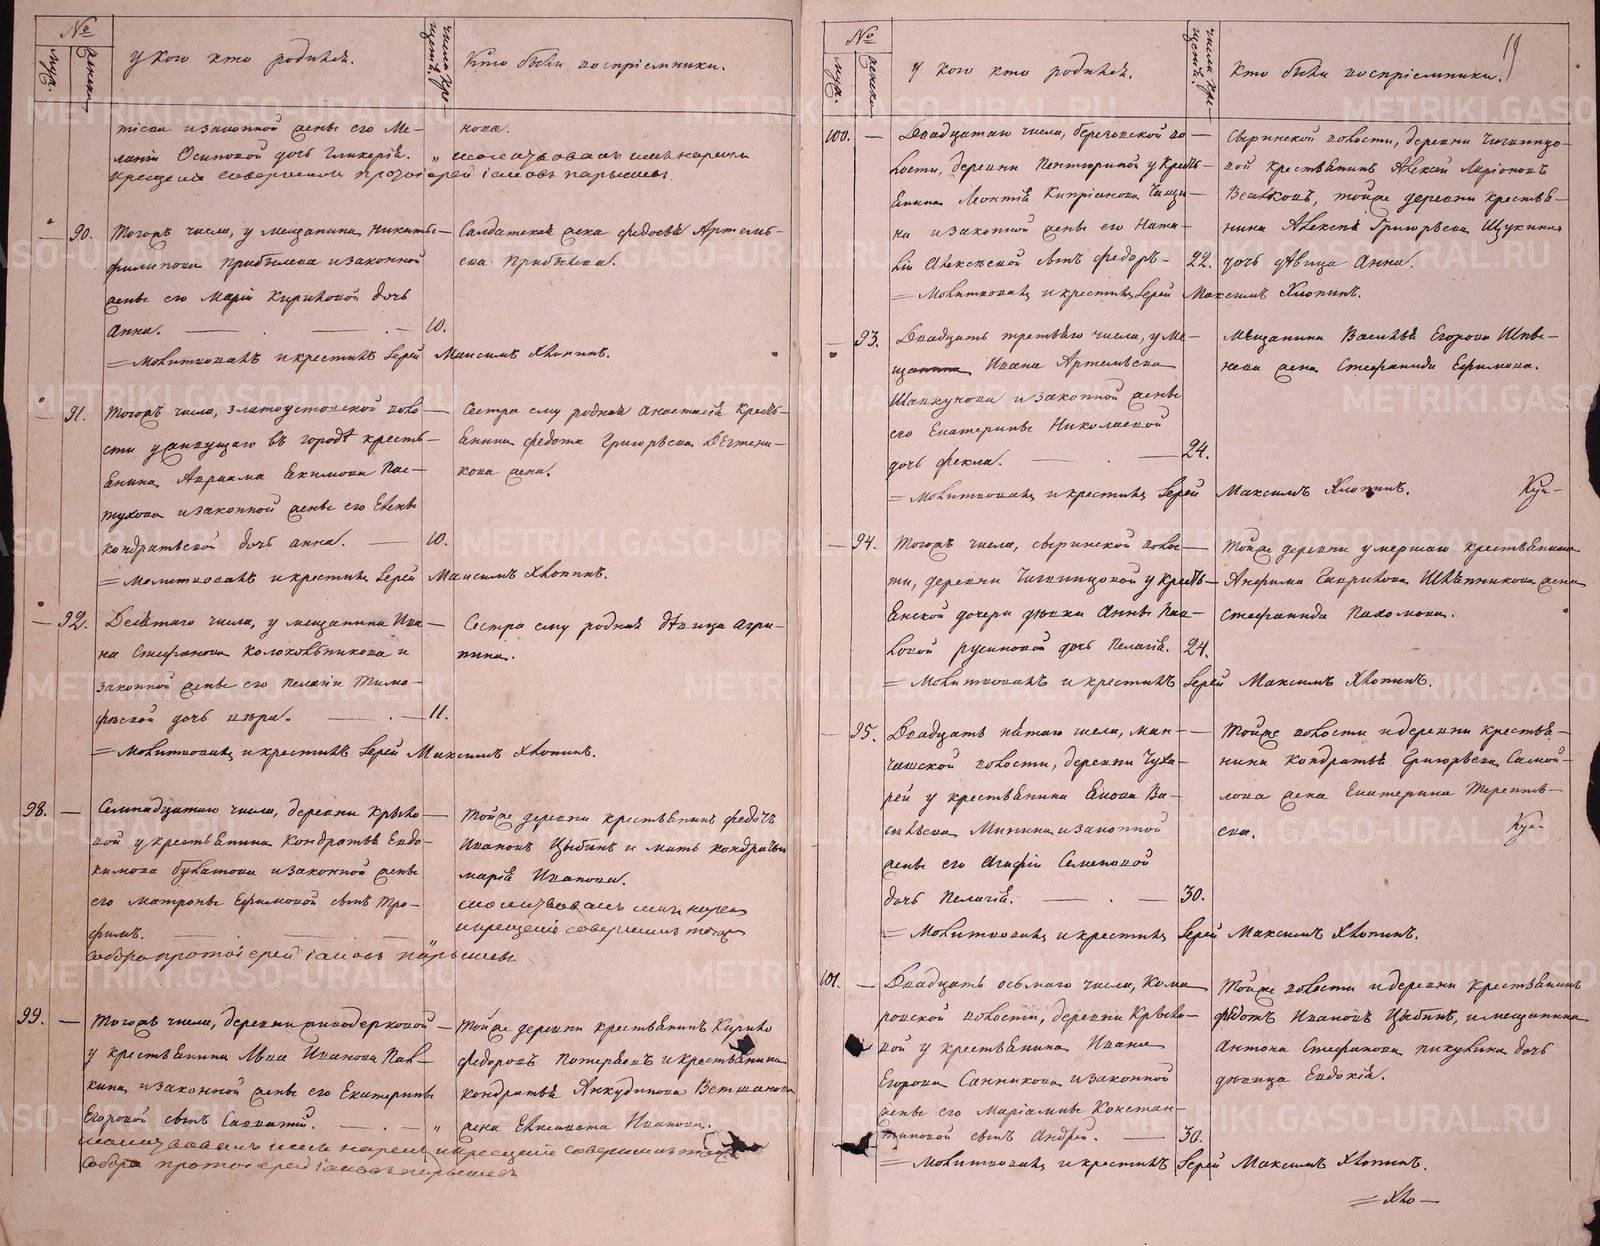 №
муж.
женск.
У кого кто родился.
числа крещенія.
Кто были воспріемники.
тіева и законной жены его Ме-
ланіи Осиповой дочь Гликерія.
нова.
молитвовалъ имя нарекъ
крещеніе совершилъ протоіерей Іаковъ
90.
Тогожъ числа, у мещанина Никиты
Филипова Прибылева и законной
жены его Маріи Кириловой дочь
Анна.
10.
Салдатская жена Федосья Артемье-
ва Прибылева.
= Молитвовалъ и крестилъ Іерей Максимъ Хлопинъ.
91.
Тогожъ числа, златоустовской воло-
сти у живущаго въ городѣ кресть-
янина Авраама Екимова Пас-
тухова и законной жены его Елены
Кондратьевой дочь Анна.
10.
Сестра ему родная Анастасія кресть-
янина Федота Григорьева
кова жена.
= Молитвовалъ и крестилъ Іерей Максимъ Хлопинъ.
92.
Десятаго числа, у мещанина Ива-
на Стефанова Колокольникова и
законной жены его Пелагіи Тимо-
фѣевой дочь Вѣра.
11.
Сестра ему родная дѣвица Агри-
пина.
= Молитвовалъ и крестилъ Іерей Максимъ Хлопинъ.
98.
Семнадцатаго числа, деревни Крыло-
вой у крестьянина Кондратья Евдо-
кимова Булатова и законной жены
его Матроны Ефимовой сынъ Тро-
фимъ.
Тойже деревни крестьянинъ Федотъ
Ивановъ Цыбинъ и мать Кондратья
Марія Иванова.
молитвовалъ имя нарекъ
и крещеніе совершилъ тогожъ
собора протоіерей Іаковъ
99.
Тогожъ числа, деревни
у крестьянина Льва Иванова Пав-
кина и законной жены его Екатерины
Егоровой сынъ Савватій.
Тойже деревни крестьянинъ Кирило
Федоровъ Потеряевъ и крестьянина
Кондратья Анкудинова
жена Елисавета Иванова.
молитвовалъ имя нарекъ и крещеніе совершилъ тогожъ
собора протоіерей Іаковъ
№
муж.
женск.
У кого кто родился.
числа крещенія.
Кто были воспріемники.
100.
Двадцатаго числа, березовской во-
лости, деревни Пантюриной у кресть-
янина Леонтія Кипріанова
на и законной жены его Ната-
ліи Алексѣевой сынъ Федоръ
22.
Сыринской волости, деревни
вой крестьянинъ Алексей Ларіоновъ
тойже деревни крестья-
нина Алексѣя Григорьева Щукина
дочь дѣвица Анна.
= Молитвовалъ и крестилъ Іерей Максимъ Хлопинъ.
93.
Двадцать третьяго числа, у ме-
щанина Ивана Артемьева
Шавкунова и законной жены
его Екатерины Николаевой
дочь Фекла.
24.
Мещанина Василья Егорова
жена Стефанида Ефимова.
= Молитвовалъ и крестилъ Іерей Максимъ Хлопинъ.
94.
Тогожъ числа, сыринской волос-
ти, деревни у кресть-
янской дочери дѣвки Анны Пав-
ловой Русиновой дочь Пелагія.
24.
Тойже деревни умершаго крестьянина
Анфима Гаврилова жена
Стефанида Пахомова.
= Молитвовалъ и крестилъ Іерей Максимъ Хлопинъ.
95.
Двадцать пятаго числа, ман-
чажской волости, деревни Чуха-
рей у крестьянина Якова Ва-
сильева Минина и законной
жены его Агафіи Семеновой
дочь Пелагія.
30.
Тойже волости и деревни крестья-
нина Кондратья Григорьева Самой-
лова жена Екатерина Терентье-
ва.
= Молитвовалъ и крестилъ Іерей Максимъ Хлопинъ.
101.
Двадцать осьмаго числа, Кома-
ровской волости, деревни Крыло-
вой у крестьянина Ивана
Егорова Санникова и законной
жены его Маріамны Констан-
тиновой сынъ Андрей.
30.
Тойже волости и деревни крестьянинъ
Федотъ Ивановъ Цыбинъ, и мещанина
Антона Стефанова Пикулина дочь
дѣвица Евдокія.
= Молитвовалъ и крестилъ Іерей Максимъ Хлопинъ.
= Хло —
METRIKI.GASO-URAL.RU